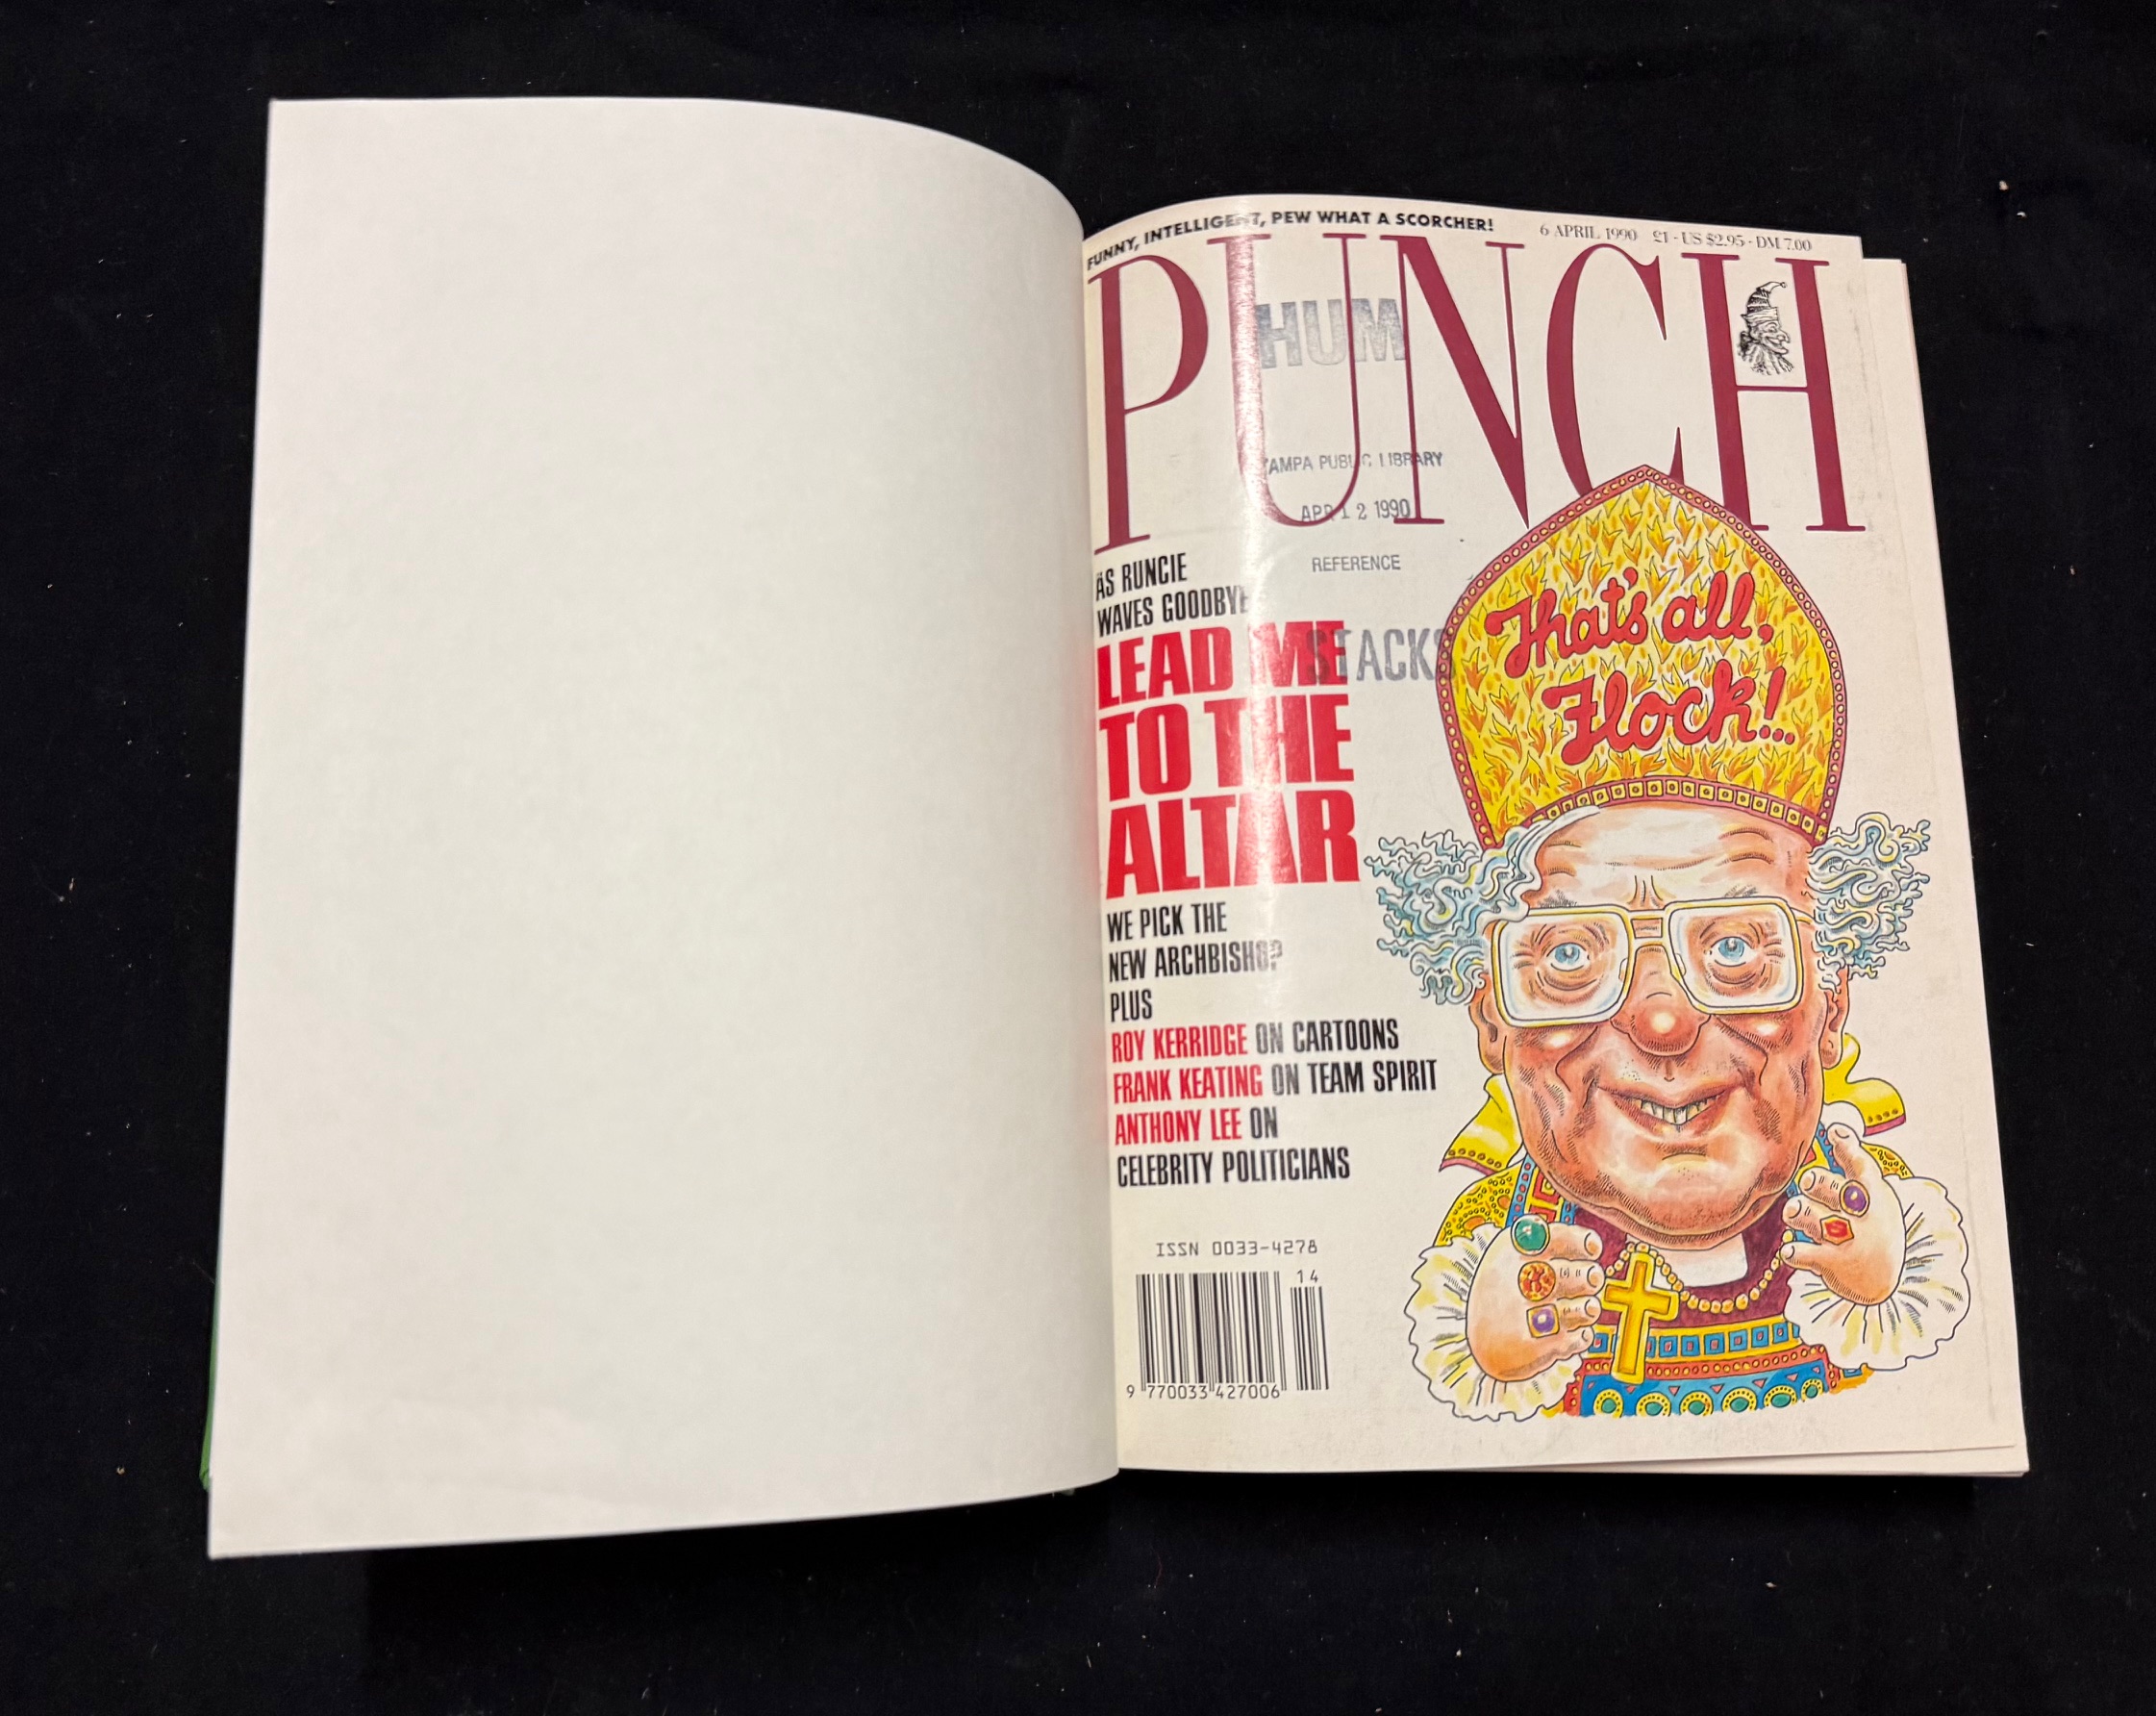 FUNNY, INTELLIGENT, PEW WHAT A SCORCHER!
6 APRIL 1990 £1 - US $2.95 - DM 7.00
PUNCH
HUM
TAMPA PUBLIC LIBRARY
APR 12 1990
REFERENCE
STACKS
AS RUNCIE
WAVES GOODBYE
LEAD ME
TO THE
ALTAR
WE PICK THE
NEW ARCHBISHOP
PLUS
ROY KERRIDGE ON CARTOONS
FRANK KEATING ON TEAM SPIRIT
ANTHONY LEE ON
CELEBRITY POLITICIANS
That's all,
Flock!...
ISSN 0033-4278
14
9 770033 427006